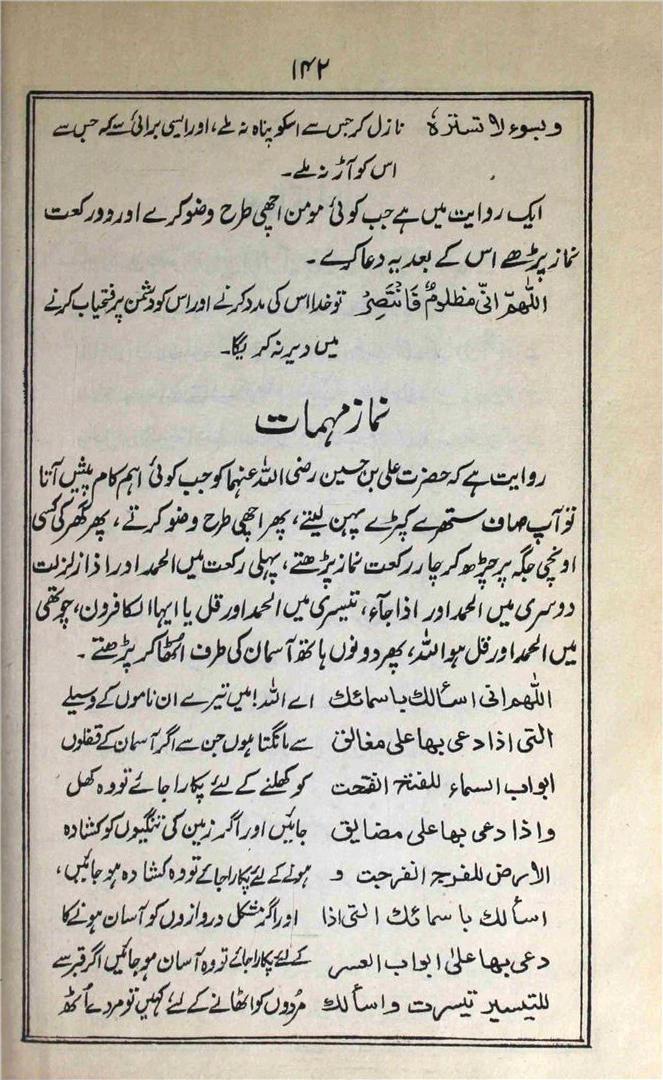 ۱۴۲
وبسوء لا تسترہ نازل کر جس سے اسکو پناہ نہ ملے، اور ایسی برائی سے کہ جس سے
اس کو آڑ نہ ملے۔
ایک روایت میں ہے جب کوئی مومن اچھی طرح وضو کرے اور دو رکعت
نماز پڑھے اس کے بعد یہ دعا کرے۔
اللٰھم انّی مظلومٌ فَانْتَصِرْ تو خدا اس کی مدد کرنے اور اس کو دشمن پر فتحیاب کرنے
میں دیر نہ کریگا۔
نماز مہمات
روایت ہے کہ حضرت علی بن حسین رضی اللہ عنہما کو جب کوئی اہم کام پیش آتا
تو آپ صاف ستھرے کپڑے پہن لیتے، پھر اچھی طرح وضو کرتے، پھر گھر کی کسی
اونچی جگہ پر چڑھ کر چار رکعت نماز پڑھتے، پہلی رکعت میں الحمد اور اذا زلزلت
دوسری میں الحمد اور اذا جآء، تیسری میں الحمد اور قل یا ایہا الکافرون، چوتھی
میں الحمد اور قل ہو اللہ، پھر دونوں ہاتھ آسمان کی طرف اٹھا کر پڑھتے۔
اللٰھم انی اسألك باسمائك اے اللہ! میں تیرے ان ناموں کے وسیلے
التی اذا دعی بھا علی مغالق سے مانگتا ہوں جن سے اگر آسمان کے قفلوں
ابواب السماء للفتح انفتحت کو کھلنے کے لئے پکارا جائے تو وہ کھل
واذا دعی بھا علی مضایق جائیں اور اگر زمین کی تنگیوں کو کشادہ
الارض للفرجۃ انفرجت و ہونے کے لئے پکارا جائے تو وہ کشادہ ہو جائیں،
اسألك باسمائك التی اذا اور اگر مشکل دروازوں کو آسان ہونے کا
دعی بھا علیٰ ابواب العسر کے لئے پکارا جائے تو وہ آسان ہو جائیں اگر قبر سے
للتیسیر تیسرت واسألك مُردوں کو اٹھانے کے لئے کہیں تو مردے اُٹھ